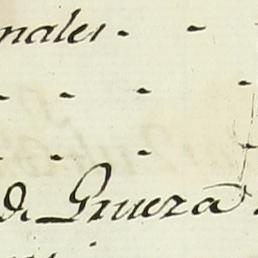 nales. -
- - - -
- - - -
de Grueza.